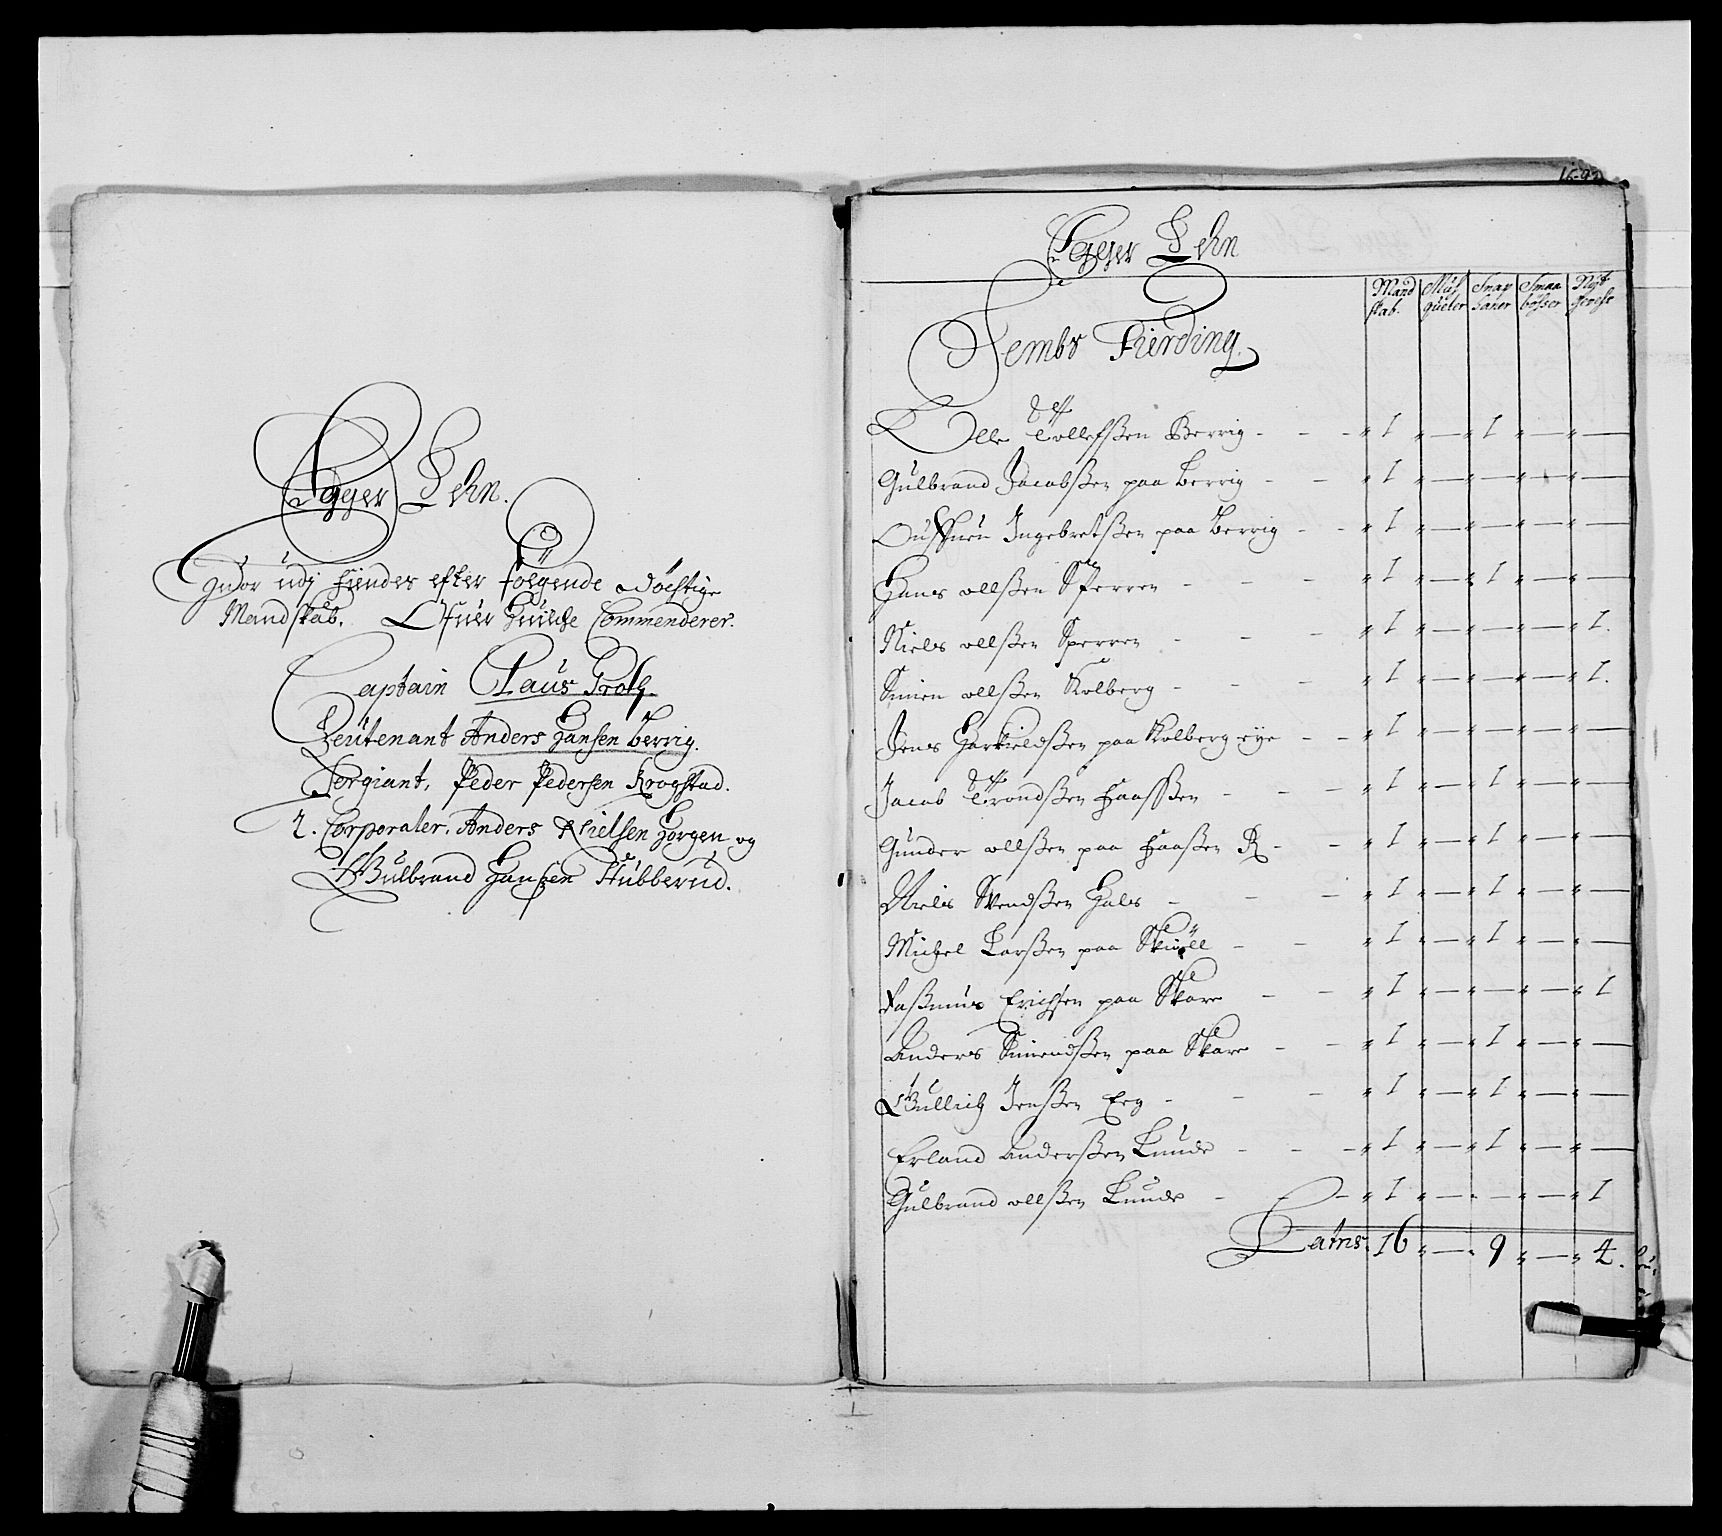 Egger Lehn.
Huor udj fiindes efter følgende døchtige
Mandskab. Ofuer huilche Commenderer.
Captain Claus Groth.
Leutenant Anders Hansen Berrig.
Sergiant, Peder Pedersen Krogstad.
2. Corporaler. Anders Nielsen Horgen og
Gulbrand Hansen Stubberud.
1692
Egger Lehn
Mand Mus Snap Smaa Nyt
skab. queter haner bösser gevehr
Sembs Fierding.
Olle Tollefsen Berrig - - - „ 1 „ — „ 1 „ — „ —
Gulbrand Jacobsen paa Berrig - - „ 1 „ — „ — „ — „ —
Ingebretsen paa Berrig - - „ 1 „ — „ — „ — „ —
Hans ollsen Sperren - - - „ 1 „ — „ 1 „ — „ —
Niels ollsen Sperren - - - „ 1 „ — „ — „ — „ 1.
Simen ollsen Kolberg - - - „ 1 „ — „ — „ — „ 1.
Jens Harkieldsen paa Kolberg eye - - „ 1 „ — „ — „ — „ —
Jacob Trondsen Haassen - - - „ 1 „ — „ 1 „ — „ —
Gunder ollsen paa Haasen R - - „ 1 „ — „ 1 „ — „ —
Niels Svendsen Hals - - - „ 1 „ — „ 1 „ — „ —
Michel Larsen paa - - „ 1 „ — „ 1 „ — „ —
Rasmus Erichsen paa Skare - - „ 1 „ — „ — „ — „ 1
Anders Simendsen paa Skare - - „ 1 „ — „ 1 „ — „ —
Gullich Jensen Eeg - - - „ 1 „ — „ 1 „ — „ —
Erland Andersen Lunde - - - „ 1 „ — „ 1 „ — „ —
Gulbrand ollsen Lunde - - „ 1 „ — „ — „ — „ 1
Latus. 16 „ — „ 9 „ — „ 4.